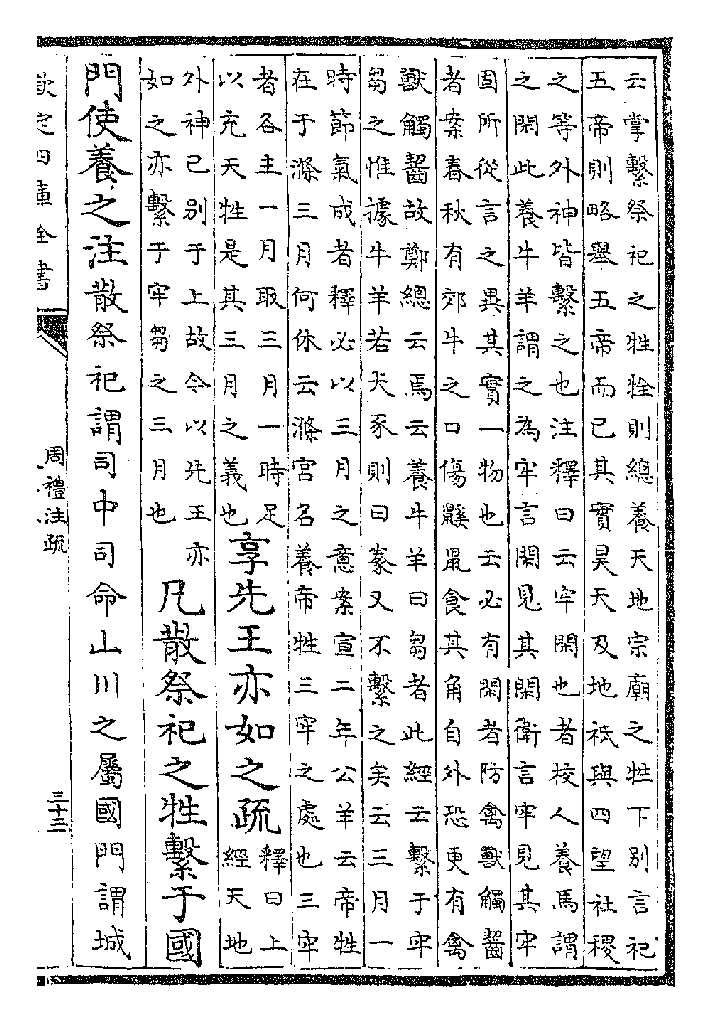 云掌繫祭祀之牲牷則總養天地宗廟之牲下别言祀
五帝則略舉五帝而已其實昊天及地祇與四望社稷
之等外神皆繫之也注釋曰云牢閑也者校人養馬謂
之閑此養牛羊謂之為牢言閑見其閑衛言牢見其牢
固所從言之異其實一物也云必有閑者防禽獸觸齧
者案春秋有郊牛之口傷鼷鼠食其角自外恐更有禽
獸觸齧故鄭總云焉云養牛羊曰芻者此經云繫于牢
芻之惟據牛羊若犬豕則曰豢又不繫之矣云三月一
時節氣成者釋必以三月之意案宣二年公羊云帝牲
在于滌三月何休云滌宮名養帝牲三牢之處也三牢
者各主一月取三月一時足
以充天牲是其三月之義也
享先王亦如之疏
釋曰上
經天地
外神已别于上故令以先王亦
如之亦繫于牢芻之三月也
凡散祭祀之牲繫于國
門使養之注散祭祀謂司中司命山川之屬國門謂城
欽定四庫全書
周禮注疏
三十三